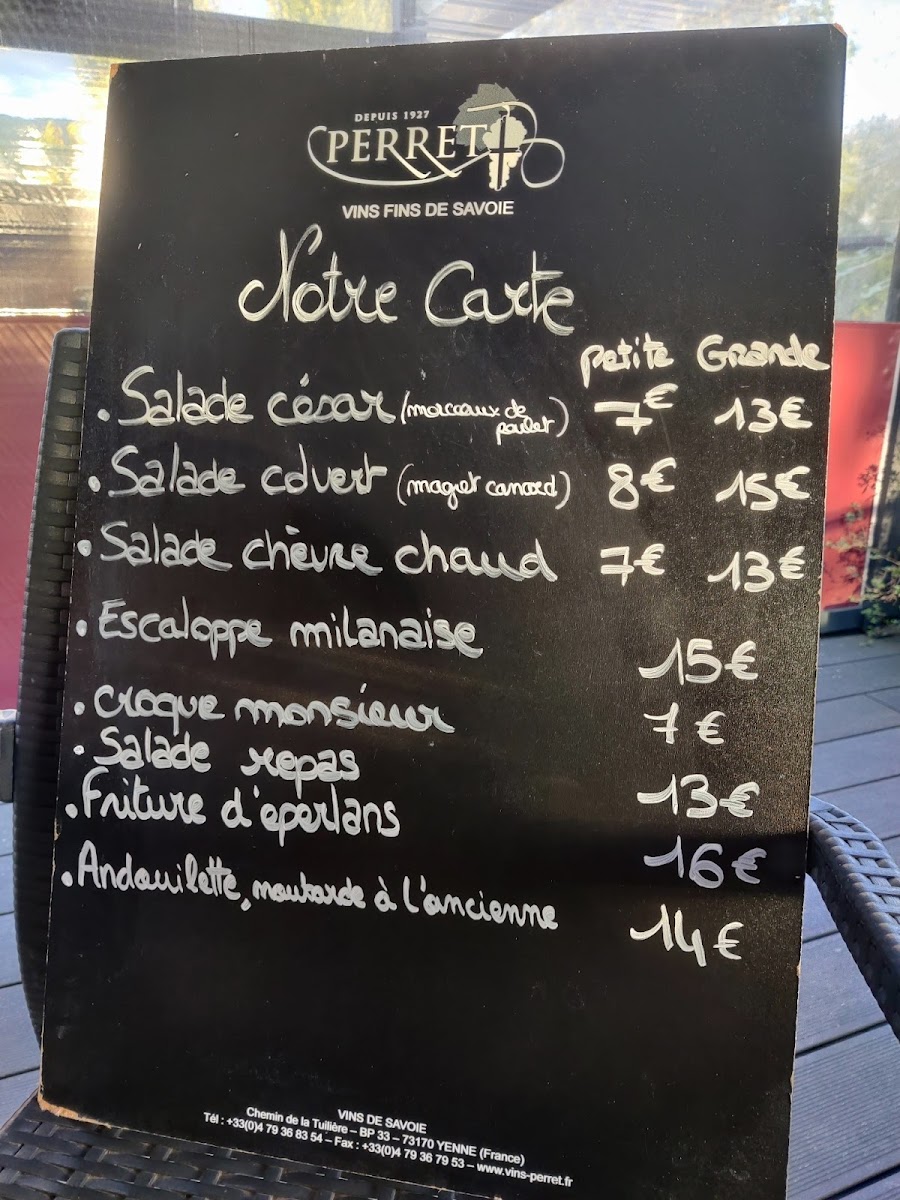 DEPUIS 1927
PERRET
VINS FINS DE SAVOIE
Notre Carte
petite Grande
• Salade césar (morceaux de poulet) 7€ 13€
• Salade cdvert (magret canard) 8€ 15€
• Salade chèvre chaud 7€ 13€
• Escaloppe milanaise 15€
• croque monsieur 7€
• Salade repas 13€
• Friture d'eperlans 16€
• Andouilette, moutarde à l'ancienne 14€
VINS DE SAVOIE
Chemin de la Tuilière – BP 33 – 73170 YENNE (France)
Tél : +33(0)4 79 36 83 54 – Fax : +33(0)4 79 36 79 53 – www.vins-perret.fr